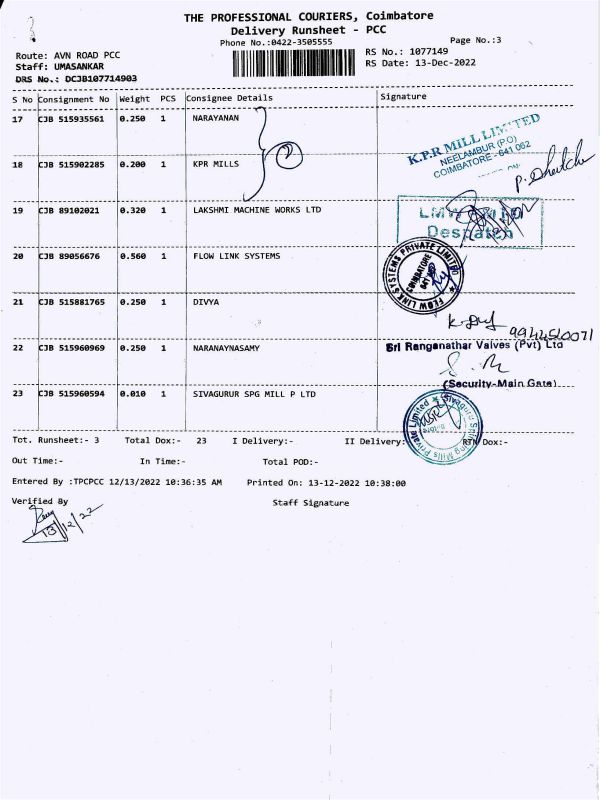 THE PROFESSIONAL COURIERS, Coimbatore
Delivery Runsheet - PCC
Phone No.:0422-3505555
Page No.:3
Route: AVN ROAD PCC
Staff: UMASANKAR
DRS No.: DCJB107714903
RS No.: 1077149
RS Date: 13-Dec-2022
S No Consignment No Weight PCS Consignee Details Signature
17 CJB 515935561 0.250 1 NARAYANAN
K.P.R MILL LIMITED
NEELAMBUR (PO)
COIMBATORE - 641 062
18 CJB 515902285 0.200 1 KPR MILLS
19 CJB 89102021 0.320 1 LAKSHMI MACHINE WORKS LTD
Despatch
20 CJB 89056676 0.560 1 FLOW LINK SYSTEMS
FLOW LINK SYSTEMS PRIVATE LIMITED
COIMBATORE
21 CJB 515881765 0.250 1 DIVYA
9944510071
22 CJB 515960969 0.250 1 NARANAYNASAMY
Sri Ranganathar Valves (Pvt) Ltd
(Security-Main Gate)
23 CJB 515960594 0.010 1 SIVAGURUR SPG MILL P LTD
Tot. Runsheet:- 3 Total Dox:- 23 I Delivery:- II Delivery: RTN Dox:-
Out Time:- In Time:- Total POD:-
Entered By :TPCPCC 12/13/2022 10:36:35 AM Printed On: 13-12-2022 10:38:00
Verified By Staff Signature
13/12/22